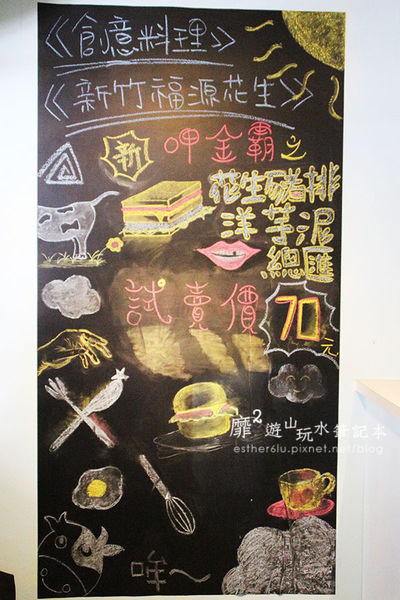 《創意料理》
《新竹福源花生》
新 呷金霸之
花生豬排
洋芋泥
總匯
試賣價 70元
靡²遊山玩水筆記本
esther6lu.pixnet.net/blog
哞～